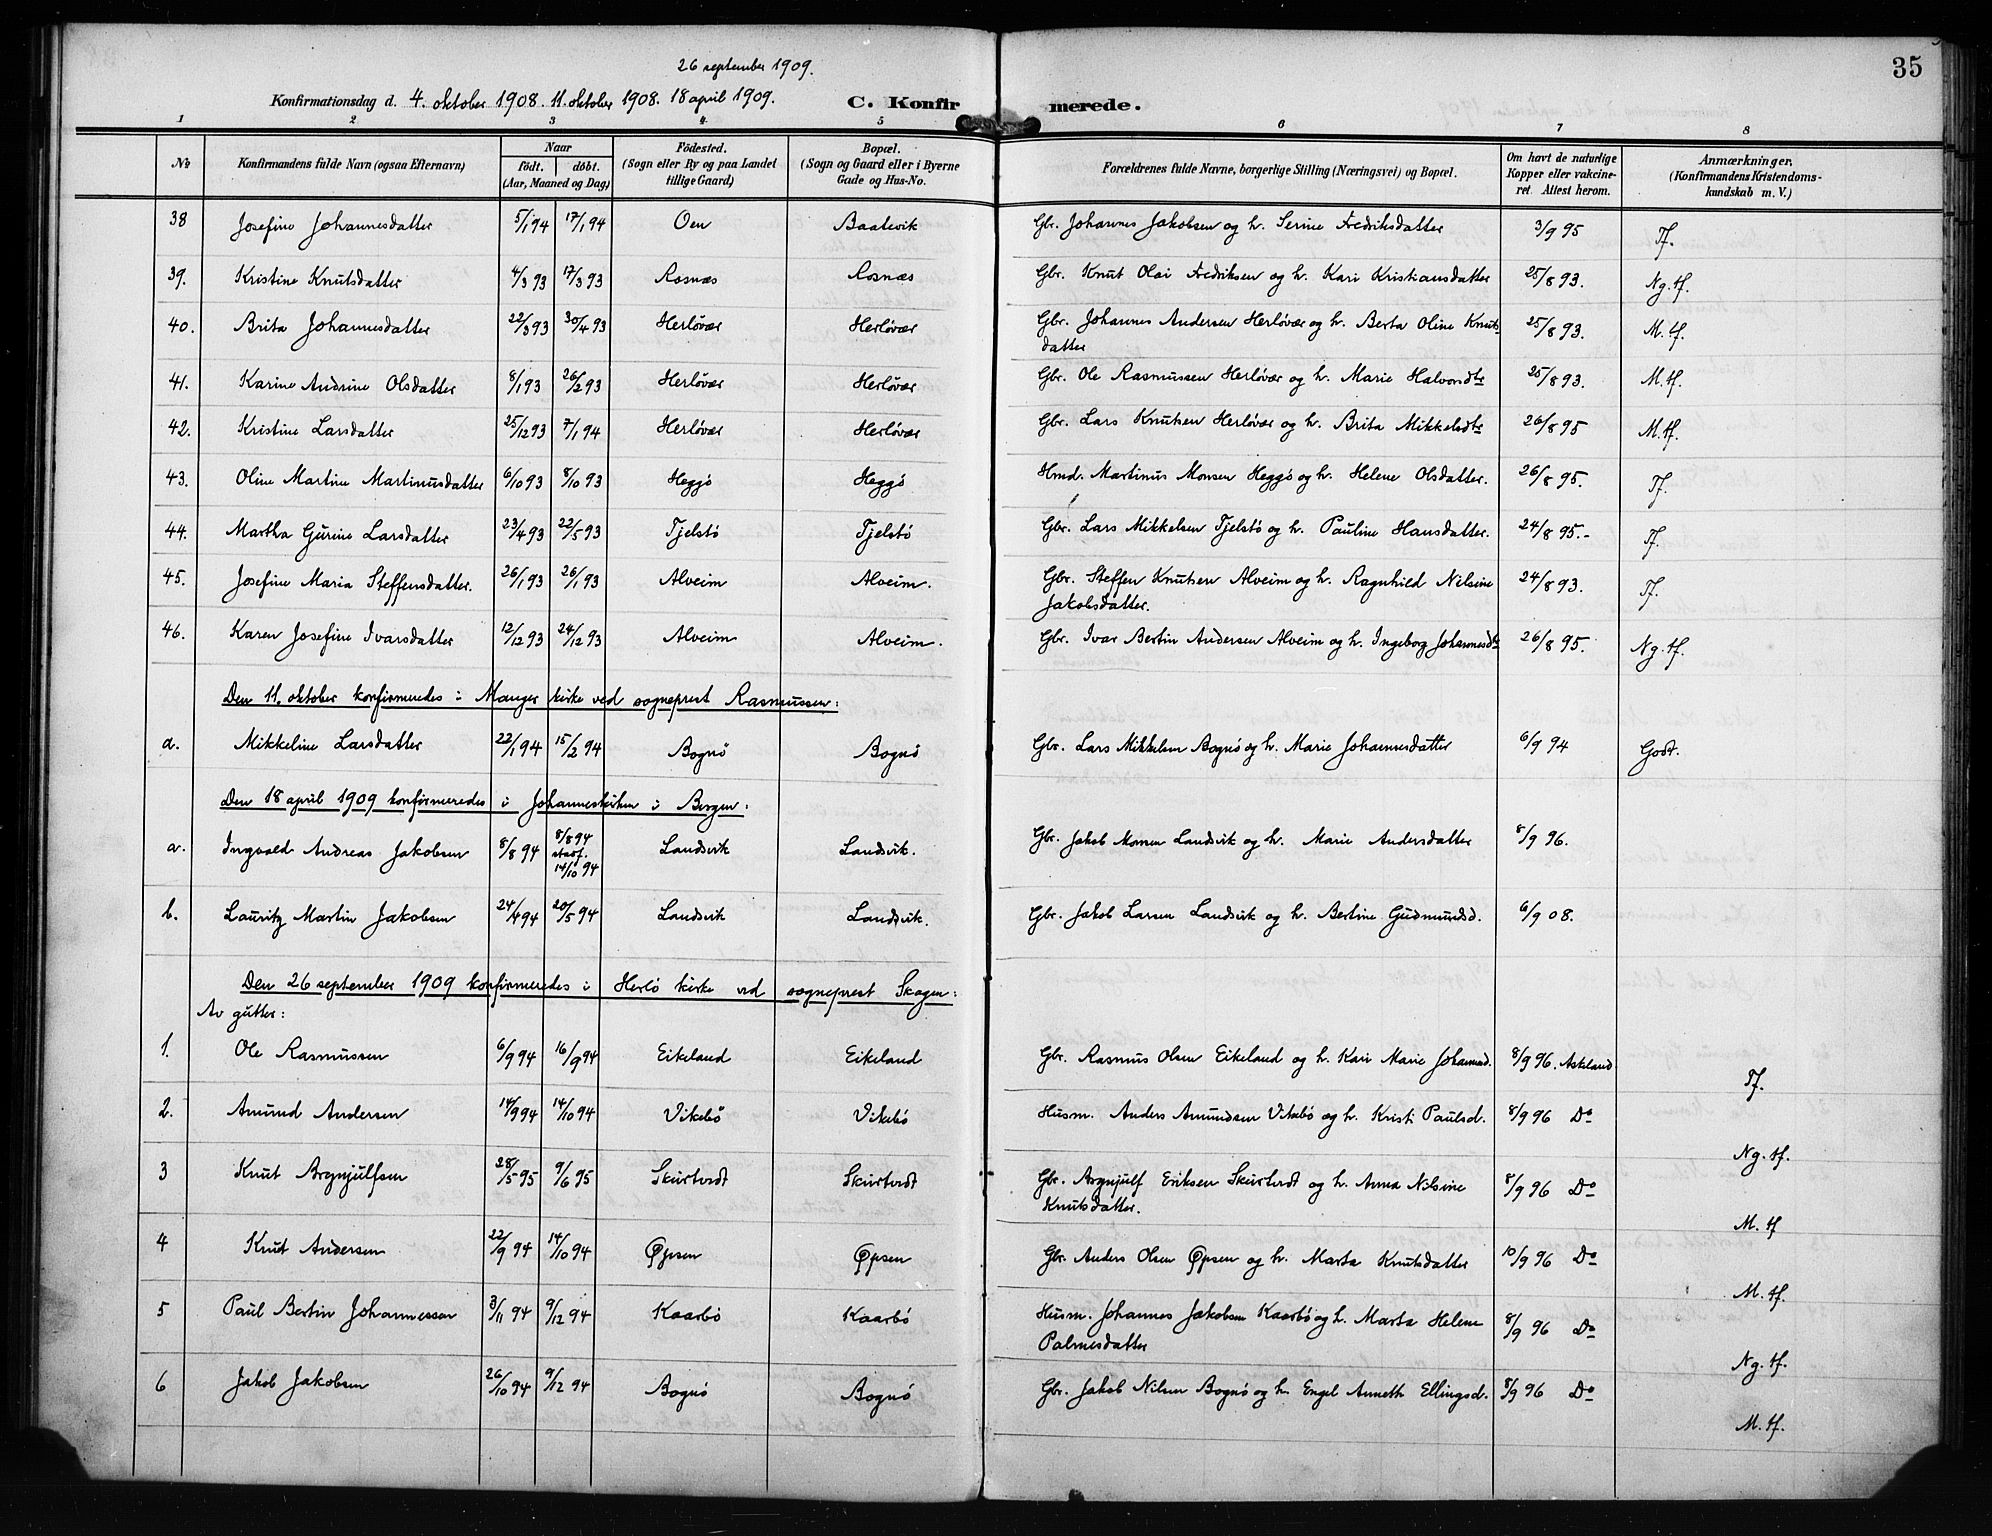 35
26 september 1909.
Konfirmationsdag d. 4. oktober 1908. 11. oktober 1908. 18 april 1909. C. Konfirmerede.
1 2 3 4. 5 6 7 8
No Konfirmandens fulde Navn (ogsaa Efternavn) Naar født. døbt. (Aar, Maaned og Dag) Fødested. (Sogn eller By og paa Landet tillige Gaard) Bopæl. (Sogn og Gaard eller i Byerne Gade og Hus-No. Forældrenes fulde Navne, borgerlige Stilling (Næringsvei) og Bopæl. Om havt de naturlige Kopper eller vakcineret. Attest herom. Anmærkninger. (Konfirmandens Kristendomskundskab m. V.)
38 Josefine Johannesdatter 5/1 94 17/1 94 Oen Baatevik Gbr. Johannes Jakobsen og h. Serine Fredriksdatter 3/9 95 Tf.
39. Kristine Knutsdatter 4/3 93 17/3 93 Rosnæs Rosnæs Gbr. Knut Olai Fredriksen og h. Kari Kristiansdatter 25/8 93. Ng. tf.
40. Brita Johannesdatter 22/3 93 30/4 93 Herløvær Herløvær Gbr. Johannes Andersen Herløvær og h. Berta Oline Knuts
datter 25/8 93. M. tf.
41. Karine Andrine Olsdatter 8/1 93 26/2 93 Herløvær Herløvær Gbr. Ole Rasmussen Herløvær og h. Marie Halvorsdtr 25/8 93. M. tf.
42. Kristine Larsdatter 25/12 93 7/1 94 Herløvær Herløvær Gbr. Lars Knutsen Herløvær og h. Brita Mikkelsdtr 26/8 95 M. tf.
43. Oline Martine Martinusdatter 6/10 93 8/10 93 Heggø Heggø Hmd. Martinus Monsen Heggø og h. Helene Olsdatter. 26/8 95. Tf.
44. Martha Gurine Larsdatter 23/4 93 22/5 93 Tjelstø Tjelstø Gbr. Lars Mikkelsen Tjelstø og h. Pauline Hansdatter. 24/8 95.- Tf.
45. Josefine Maria Steffensdatter. 26/1 93 26/1 93 Alveim Alveim. Gbr. Steffen Knutsen Alveim og h. Ragnhild Nilsine
Jakobsdatter. 24/8 93. Tf.
46. Karen Josefine Ivarsdatter 12/12 93 24/12 93 Alveim Alveim. Gbr. Ivar Bertin Andersen Alveim og h. Ingeborg Johannesdtr 26/8 95. Ng. tf.
Den 11. oktober konfirmeredes i Manger kirke ved sogneprest Rasmussen:
a. Mikkeline Larsdatter 22/1 94 15/2 94 Bognø Bognø Gbr. Lars Mikkelsen Bognø og h. Marie Johannesdatter 6/9 94 Godt.
Den 18 april 1909 konfirmeredes i Johanneskirken i Bergen:
a. Ingvald Andreas Jakobsen 8/8 94 8/8 94 stadf. 14/10 94 Landsvik Landsvik. Gbr. Jakob Monsen Landsvik og h. Marie Andersdatter 8/9 96.
b. Lauritz Martin Jakobsen 24/4 94 20/5 94 Landsvik Landsvik. Gbr. Jakob Larsen Landsvik og h. Bertine Gudmundsd. 6/9 08.
Den 26 september 1909 konfirmeredes i Herlø kirke ved sogneprest Skagen:
Av gutter:
1. Ole Rasmussen 6/9 94 16/9 94 Eikeland Eikeland Gbr. Rasmus Olsen Eikeland og h. Kari Marie Johannesd. 8/9 96. Askeland Tf.
2. Amund Andersen 14/9 94 14/10 94 Vikebø Vikebø Husm. Anders Amundsen Vikebø og h. Kristi Paulsd. 8/9 96 Do Ng. tf.
3 Knut Brynjulfsen 28/5 95 9/6 95 Skurtvedt Skurtvedt Gbr. Brynjulf Eriksen Skurtvedt og h. Anna Nilsine
Knutsdatter. 8/9 96 Do M. tf
4 Knut Andersen 22/9 94 14/10 94 Øpsen Øpsen Gbr. Anders Olsen Øpsen og h. Marta Knutsdatter 10/9 96 Do M. tf.
5 Paul Bertin Johannessen 3/11 94 9/12 94 Kaarbø Kaarbø Husm. Johannes Jakobsen Kaarbø og h. Marta Helene
Palmesdatter 8/9 96 Do Ng. tf.
6 Jakob Jakobsen 26/10 94 9/12 94 Bognø Bognø Gbr. Jakob Nilsen Bognø og h. Engel Anneth Ellingsd. 8/9 96 Do M. tf.